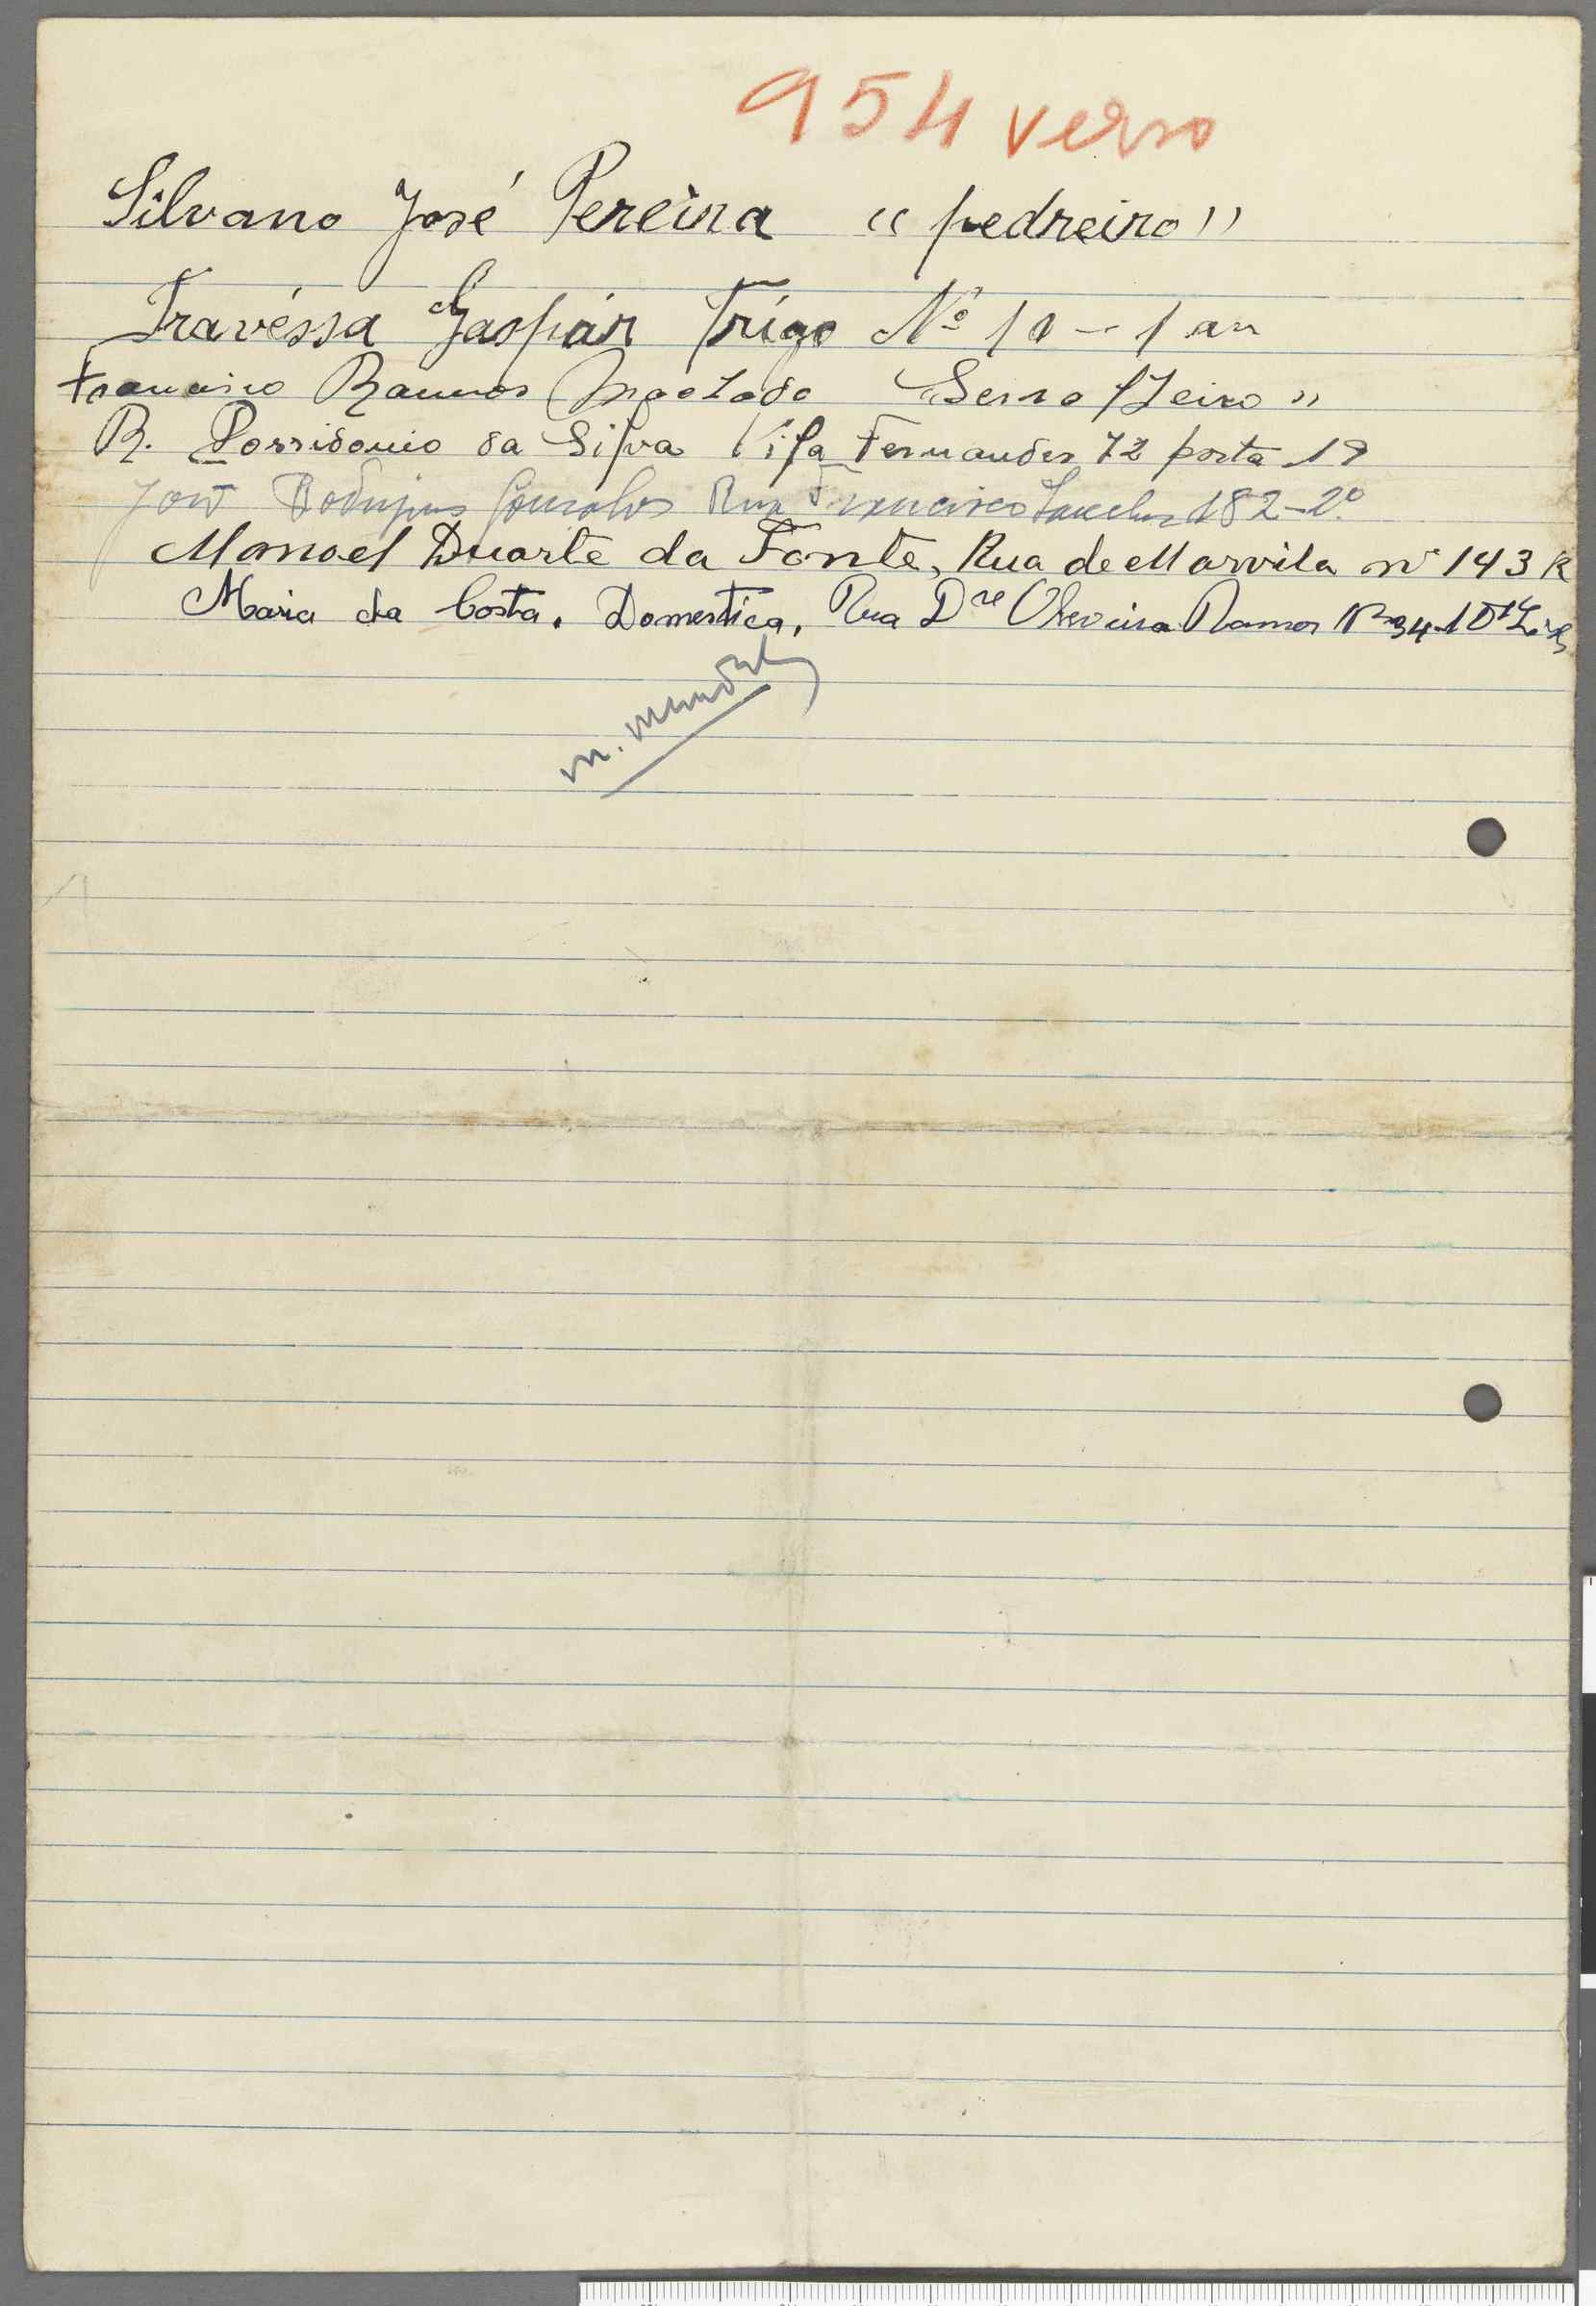 954 verso
Silvano José Pereira "pedreiro"
Travéssa Gaspár Trigo Nº 10 - 1 an
Francisco Ramos Machado "Serralheiro"
R. Possidonio da Silva Vila Fernandes 72 porta 19
José Rodrigues Gonçalves Rua Francisco Sanches 182-2º
Manoel Duarte da Fonte, Rua de Marvila nº 143 R
Maria da Costa. Domestica, Rua Dre Oliveira Ramos Nº 34-1 Dt